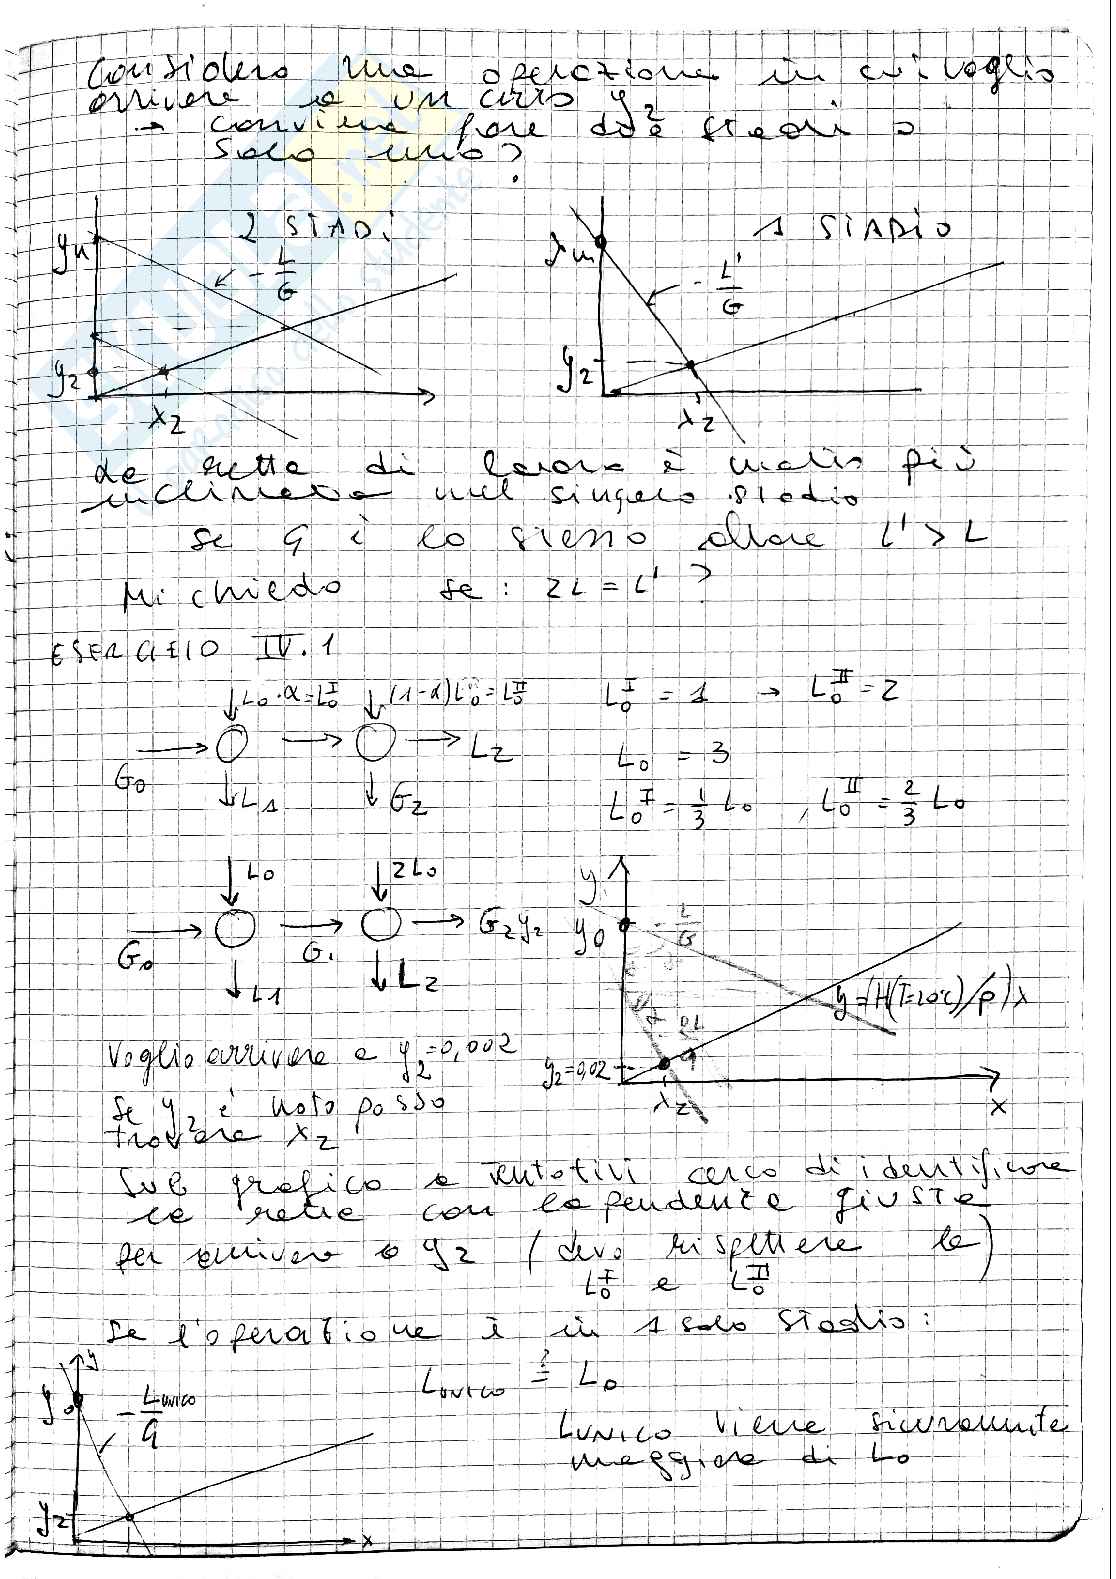 Considero una operazione in cui voglio
arrivare a un certo y2
→ conviene fare due stadi o
solo uno?
2 STADI
yn
- L/G
y2
x2
1 STADIO
yn
- L'/G
y2
x2
La retta di lavoro è molto più
inclinata nel singolo stadio
se G è lo stesso allora L' > L
Mi chiedo se: 2L = L' ?
ESERCIZIO IV.1
L0·α = L0^I
(1-α)L0 = L0^II
L0^I = 1 → L0^II = 2
G0
L2
L0 = 3
L1
G2
L0^I = 1/3 L0 , L0^II = 2/3 L0
L0
2L0
G0
G1
G2 y2
L1
L2
y
y0
- L/G
y = (H(T=20°C)/p) x
y2 = 0,02
x2
x
Voglio arrivare a y2 = 0,002
Se y2 è noto posso
trovare x2
Sul grafico a tentativi cerco di identificare
la retta con la pendenza giusta
per arrivare a y2 (devo rispettare le)
L0^I e L0^II
Se l'operazione è in 1 solo stadio:
y
y0
- Lunico/G
y2
x
LUNICO ?= L0
LUNICO viene sicuramente
maggiore di L0